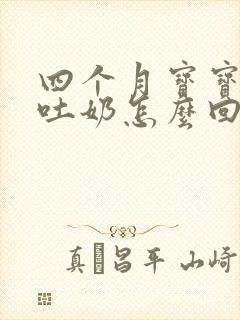 四个月寶寶
吐奶怎麼回
真 昌平 山崎